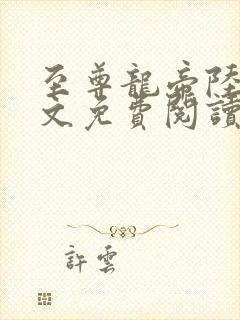 至尊龍帝陸
文免費閱讀
許雲